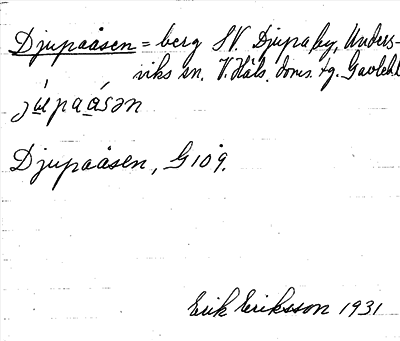 Djupaåsen = berg SV. Djupa by, Unders-
viks sn. V. Häls. doms. fg. Gavlebl
júpaásən
Djupaåsen, G109.
Erik Eriksson 1931